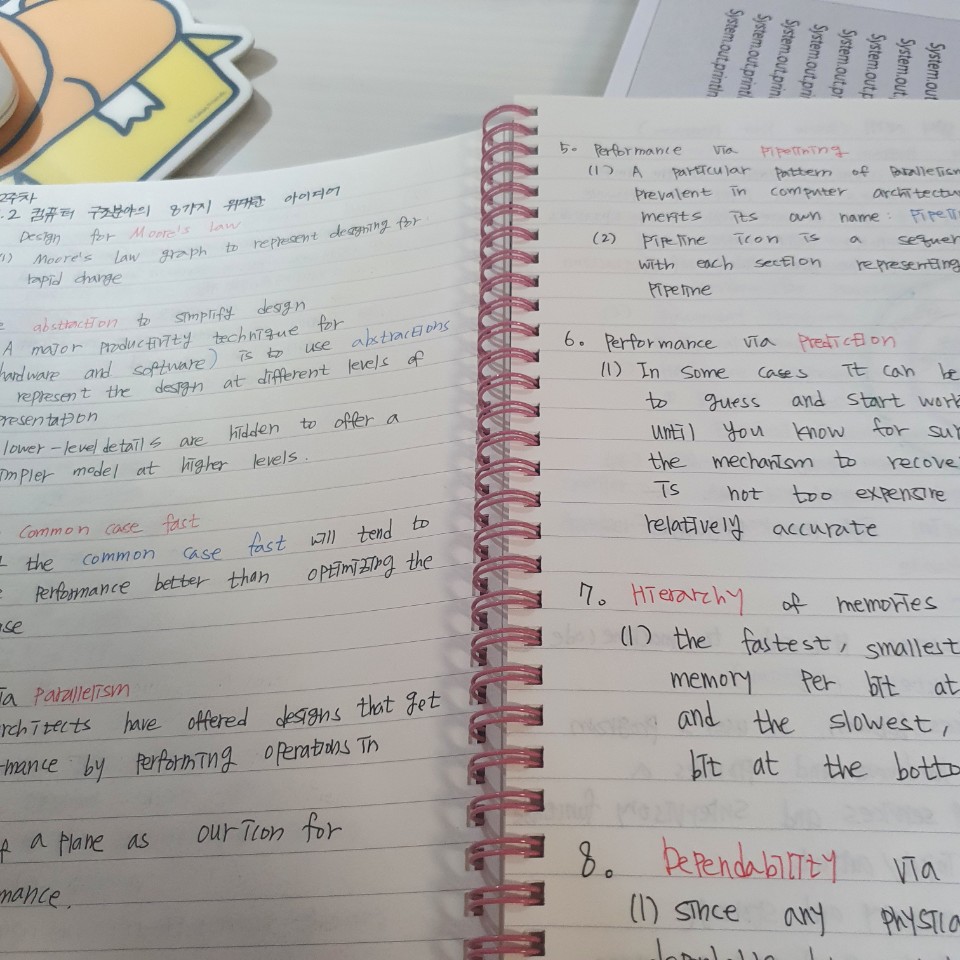 2주차
.2 컴퓨터 구조분야의 8가지 위대한 아이디어
Design for Moore's Law
(1) Moore's Law graph to represent designing for
rapid change
abstraction to simplify design
A major productivity technique for
hardware and software) is to use abstractions
represent the design at different levels of
presentation
lower-level details are hidden to offer a
impler model at higher levels.
common case fast
the common case fast will tend to
performance better than optimizing the
se
ia parallelism
rchitects have offered designs that get
mance by performing operations in
a plane as our icon for
mance.
5. Performance via Pipelining
(1) A particular pattern of parallelism
prevalent in computer architectu
merits its own name: Pipeli
(2) Pipeline icon is a sequen
with each section representing
pipeline
6. Performance via Prediction
(1) In some cases it can be
to guess and start work
until you know for sur
the mechanism to recove
is not too expensive
relatively accurate
7. Hierarchy of memories
(1) the fastest, smallest
memory per bit at
and the slowest,
bit at the botto
8. Dependability via
(1) since any physica
System.out.println
System.out.printl
System.out.prin
System.out.pri
System.out.pr
System.out.p
System.out.
System.out